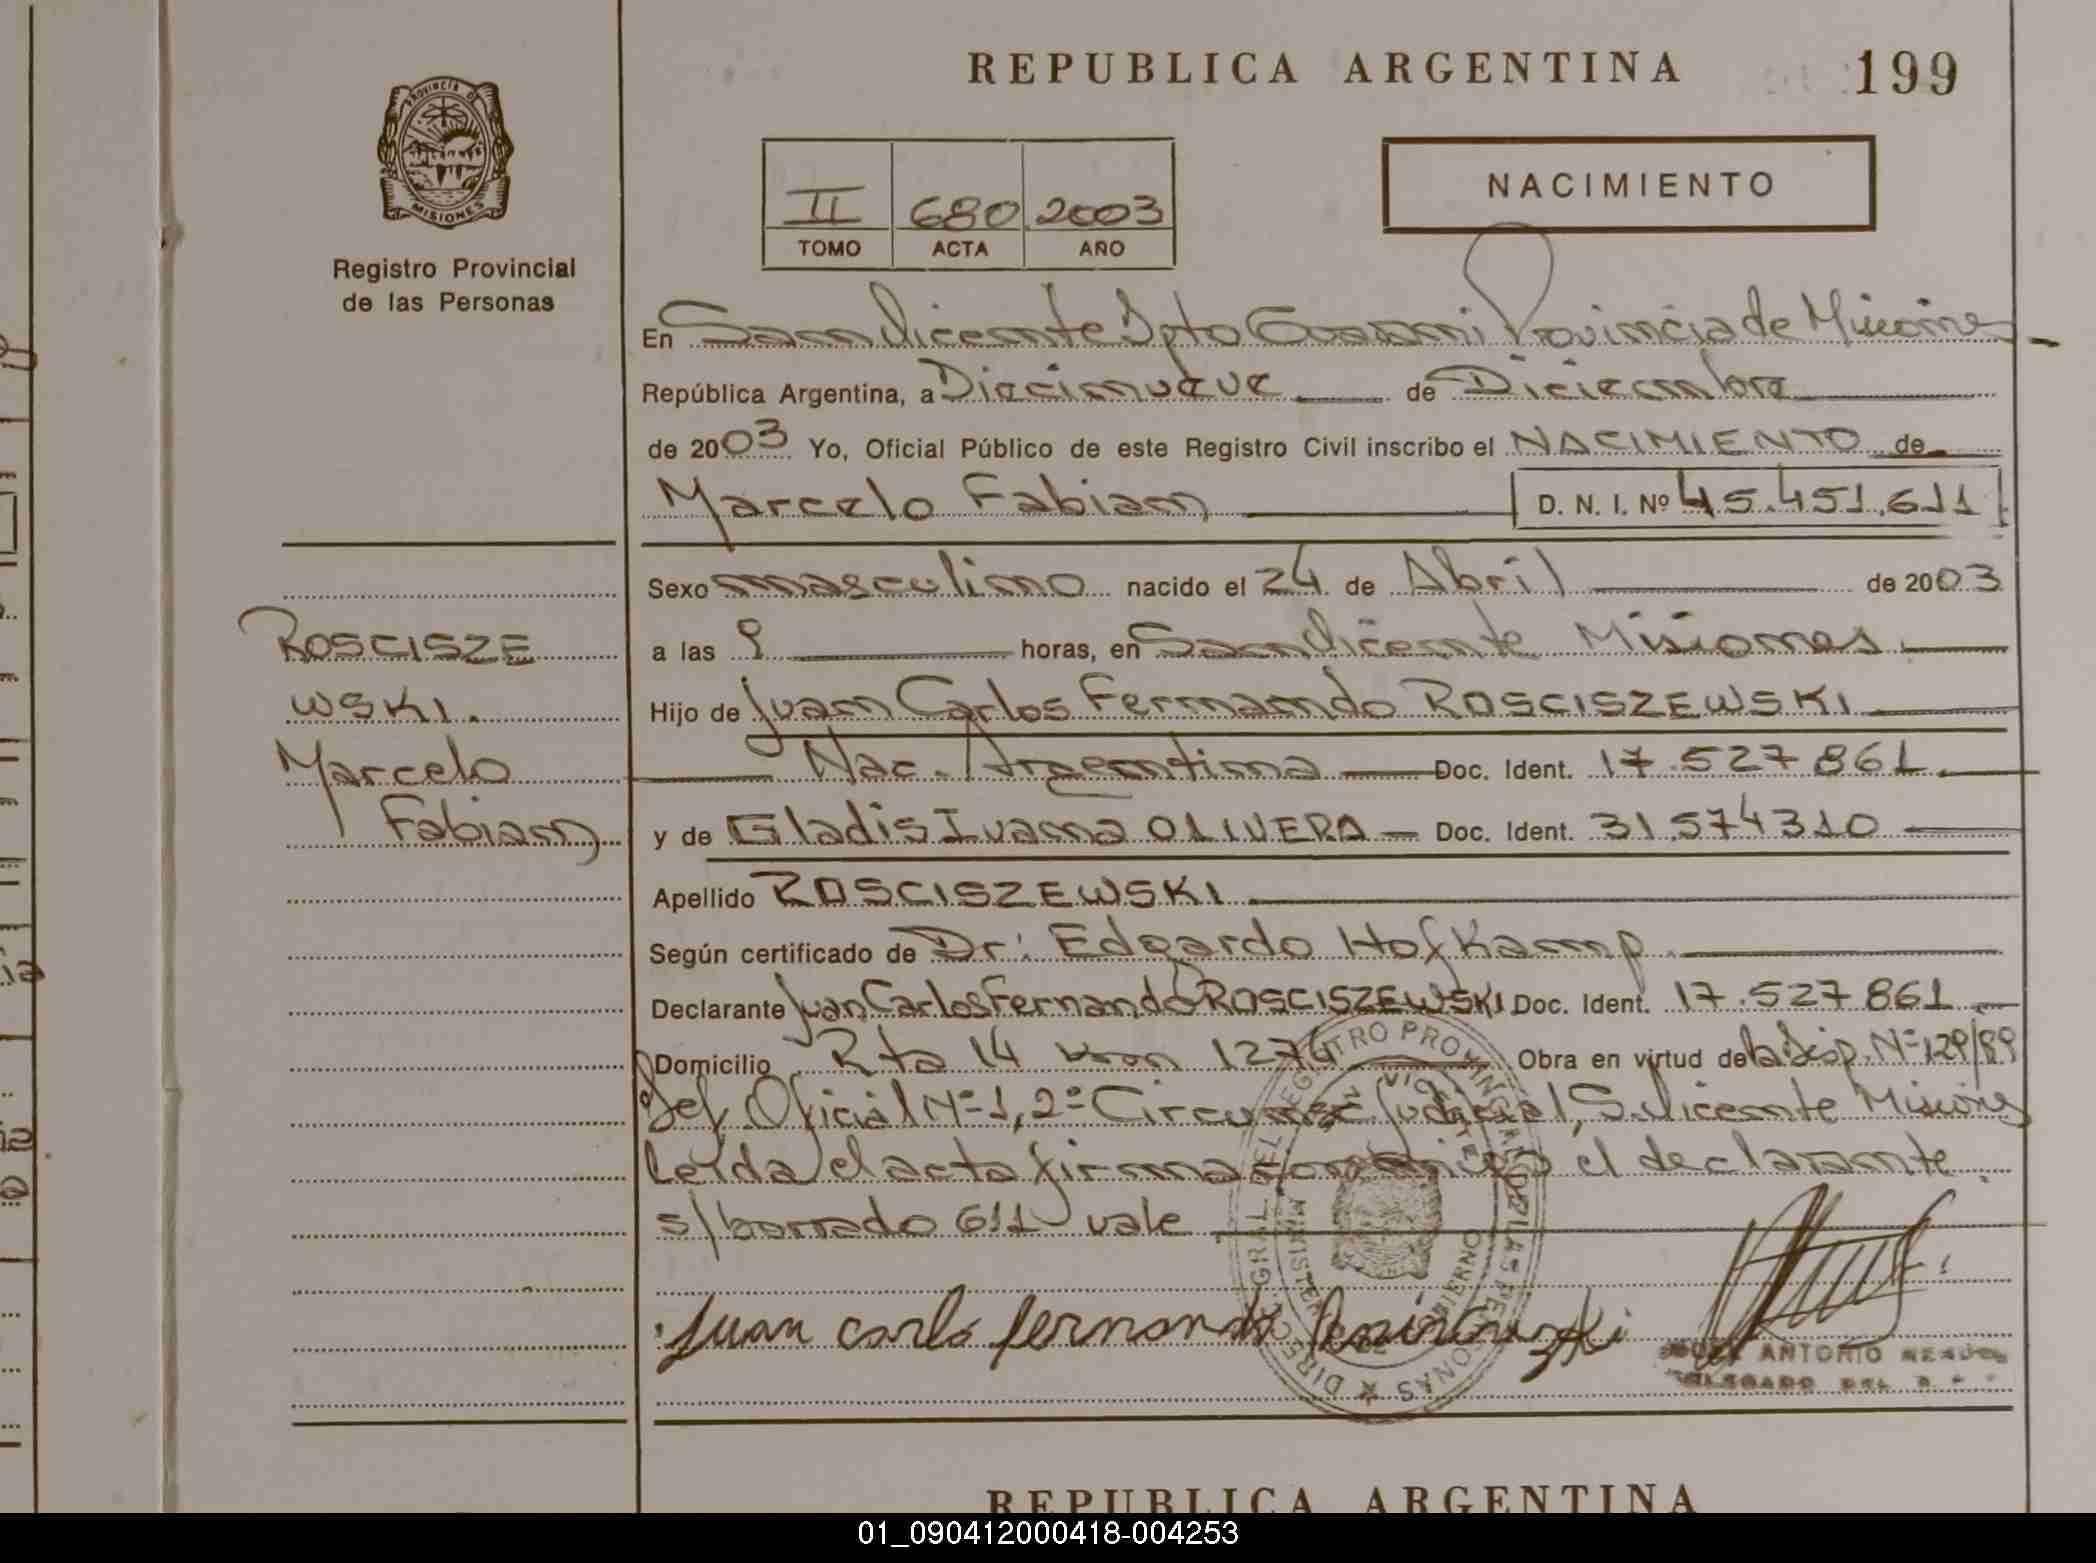 REPUBLICA ARGENTINA 199
PROVINCIA DE MISIONES
Registro Provincial
de las Personas
II 680 2003
TOMO ACTA AÑO
NACIMIENTO
En San Vicente Dpto Guarani Provincia de Misiones
República Argentina, a Diecinueve de Diciembre
de 2003 Yo, Oficial Público de este Registro Civil inscribo el NACIMIENTO de
Marcelo Fabian D. N. I. Nº 45.451.611
Sexo masculino nacido el 24 de Abril de 2003
a las 9 horas, en San Vicente Misiones
Hijo de Juan Carlos Fernando ROSCISZEWSKI
Nac. Argentina Doc. Ident. 17.527.861
y de Gladis Ivana OLIVERA Doc. Ident. 31.574310
Apellido ROSCISZEWSKI
Según certificado de Dr: Edgardo Hofkamp
Declarante Juan Carlos Fernando ROSCISZEWSKI Doc. Ident. 17.527.861
Domicilio Rta 14 km 1274 Obra en virtud de la Disp. Nº 129/89
Def. Oficial Nº 1, 2º Circunsc Judicial, S. Vicente Misiones
Leída el acta firma conmigo el declarante.
s/borrado 611 vale
ROSCISZE
WSKI.
Marcelo
Fabian
DIREC. GRAL DEL REGISTRO PROVINCIAL DE LAS PERSONAS
MINISTERIO DE GOBIERNO
Juan carlo fernando
ANTONIO
DELEGADO DEL
REPUBLICA ARGENTINA
01_090412000418-004253